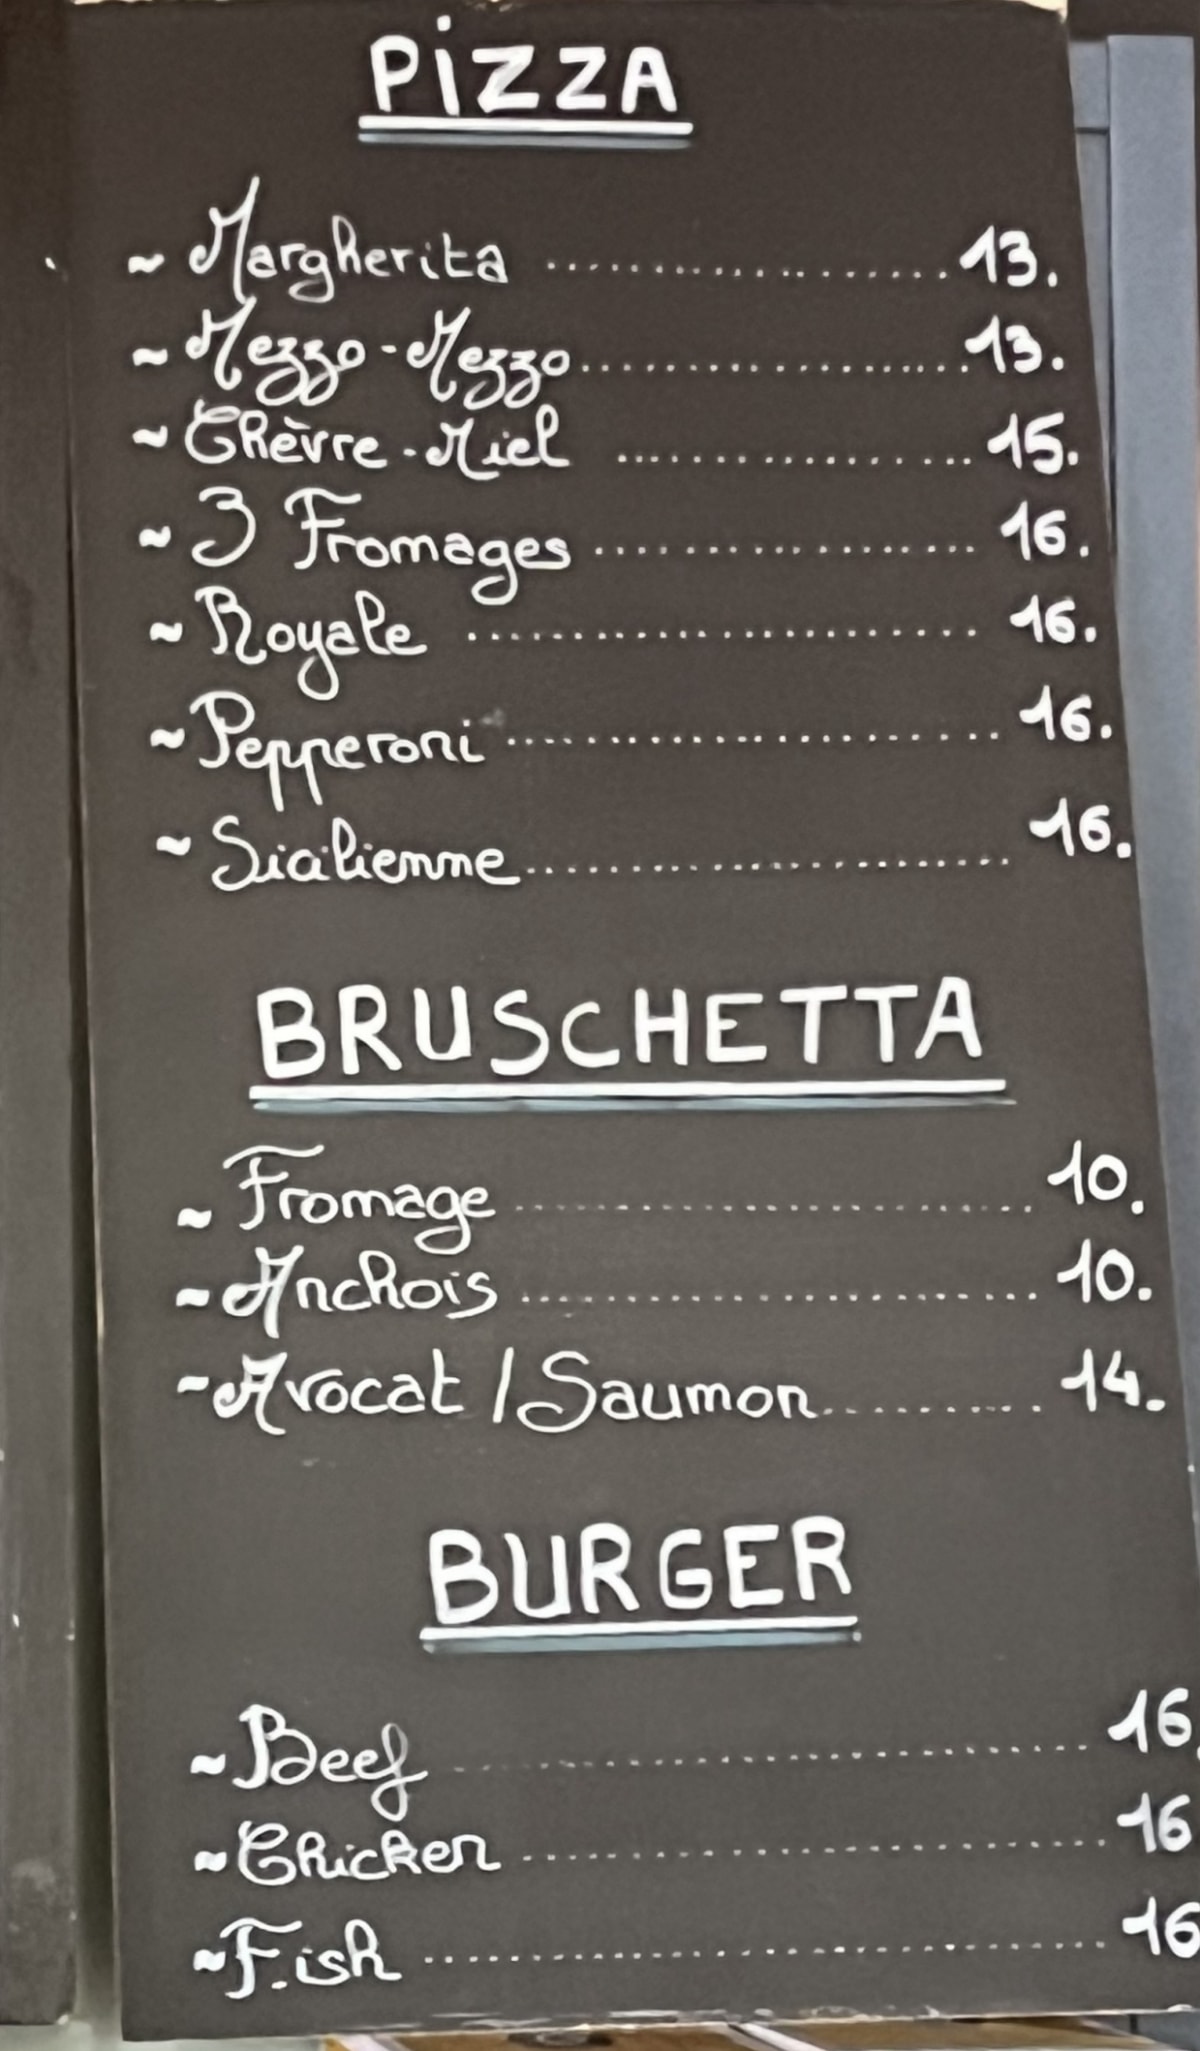 PIZZA
~ Margherita .................... 13.
~ Mezzo-Mezzo .................... 13.
~ Chèvre-Miel .................... 15.
~ 3 Fromages .................... 16.
~ Royale .................... 16.
~ Pepperoni .................... 16.
~ Sicilienne .................... 16.
BRUSCHETTA
~ Fromage .................... 10.
~ Anchois .................... 10.
~ Avocat / Saumon .......... 14.
BURGER
~ Beef .................... 16.
~ Chicken .................... 16
~ Fish .................... 16